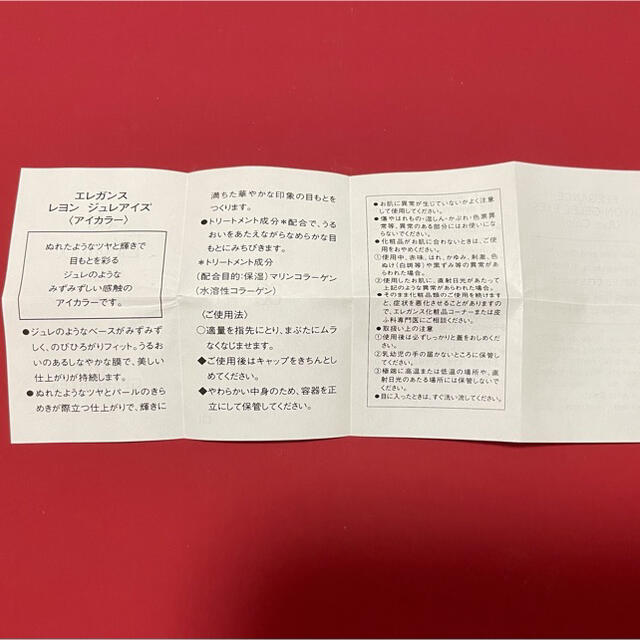 エレガンス
レヨン ジュレアイズ
〈アイカラー〉
ぬれたようなツヤと輝きで
目もとを彩る
ジュレのような
みずみずしい感触の
アイカラーです。
●ジュレのようなベースがみずみず
しく、のびひろがりフィット。うるお
いのあるしなやかな膜で、美しい
仕上がりが持続します。
●ぬれたようなツヤとパールのきら
めきが際立つ仕上がりで、輝きに
満ちた華やかな印象の目もとを
つくります。
●トリートメント成分*配合で、うる
おいをあたえながらなめらかな目
もとにみちびきます。
*トリートメント成分
(配合目的:保湿)マリンコラーゲン
(水溶性コラーゲン)
〈ご使用法〉
○適量を指先にとり、まぶたにムラ
なくなじませます。
◆ご使用後はキャップをきちんとし
めてください。
◆やわらかい中身のため、容器を正
立にして保管してください。
●お肌に異常が生じていないかよく注意
して使用してください。
●傷やはれもの・湿しん・かぶれ・色素異
常等、異常のある部分にはお使いにな
らないでください。
●化粧品がお肌に合わないときは、ご使
用をおやめください。
①使用中、赤味、はれ、かゆみ、刺激、色
ぬけ(白斑等)や黒ずみ等の異常があ
らわれた場合。
②使用したお肌に、直射日光があたって
上記のような異常があらわれた場合。
●そのまま化粧品類のご使用を続けます
と、症状を悪化させることがありますの
で、エレガンス化粧品コーナーまたは皮
ふ科専門医にご相談ください。
●取扱い上の注意
①使用後は必ずしっかりと蓋をおしめくだ
さい。
②乳幼児の手の届かないところに保管し
てください。
③極端に高温または低温の場所や、直
射日光のあたる場所には保管しないで
ください。
●目に入ったときは、すぐ洗い流してください。